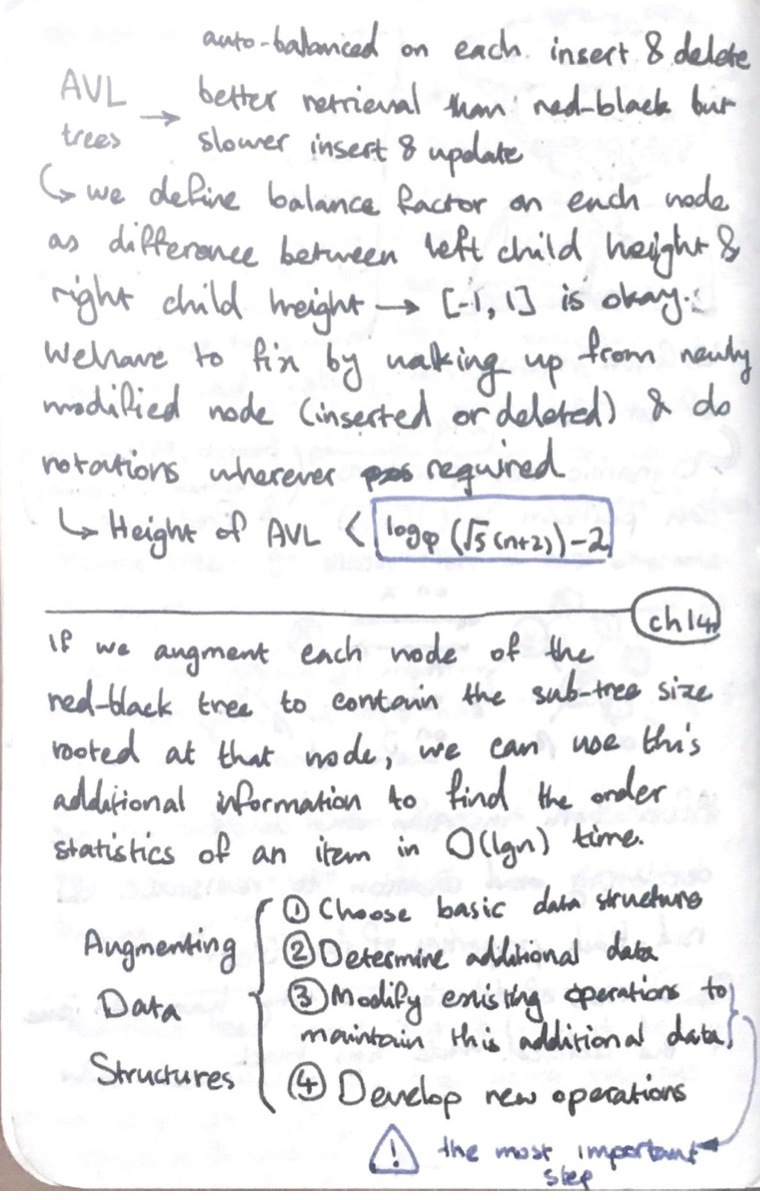 auto-balanced on each insert & delete
AVL trees → better retrieval than red-black but
slower insert & update
↳ we define balance factor on each node
as difference between left child height &
right child height → [-1, 1] is okay.
We have to fix by walking up from newly
modified node (inserted or deleted) & do
rotations wherever required
↳ Height of AVL < logφ (√5 (n+2)) - 2
ch14
If we augment each node of the
red-black tree to contain the sub-tree size
rooted at that node, we can use this
additional information to find the order
statistics of an item in O(lgn) time.
Augmenting
Data
Structures
① Choose basic data structure
② Determine additional data
③ Modify existing operations to
maintain this additional data
④ Develop new operations
⚠ the most important
step